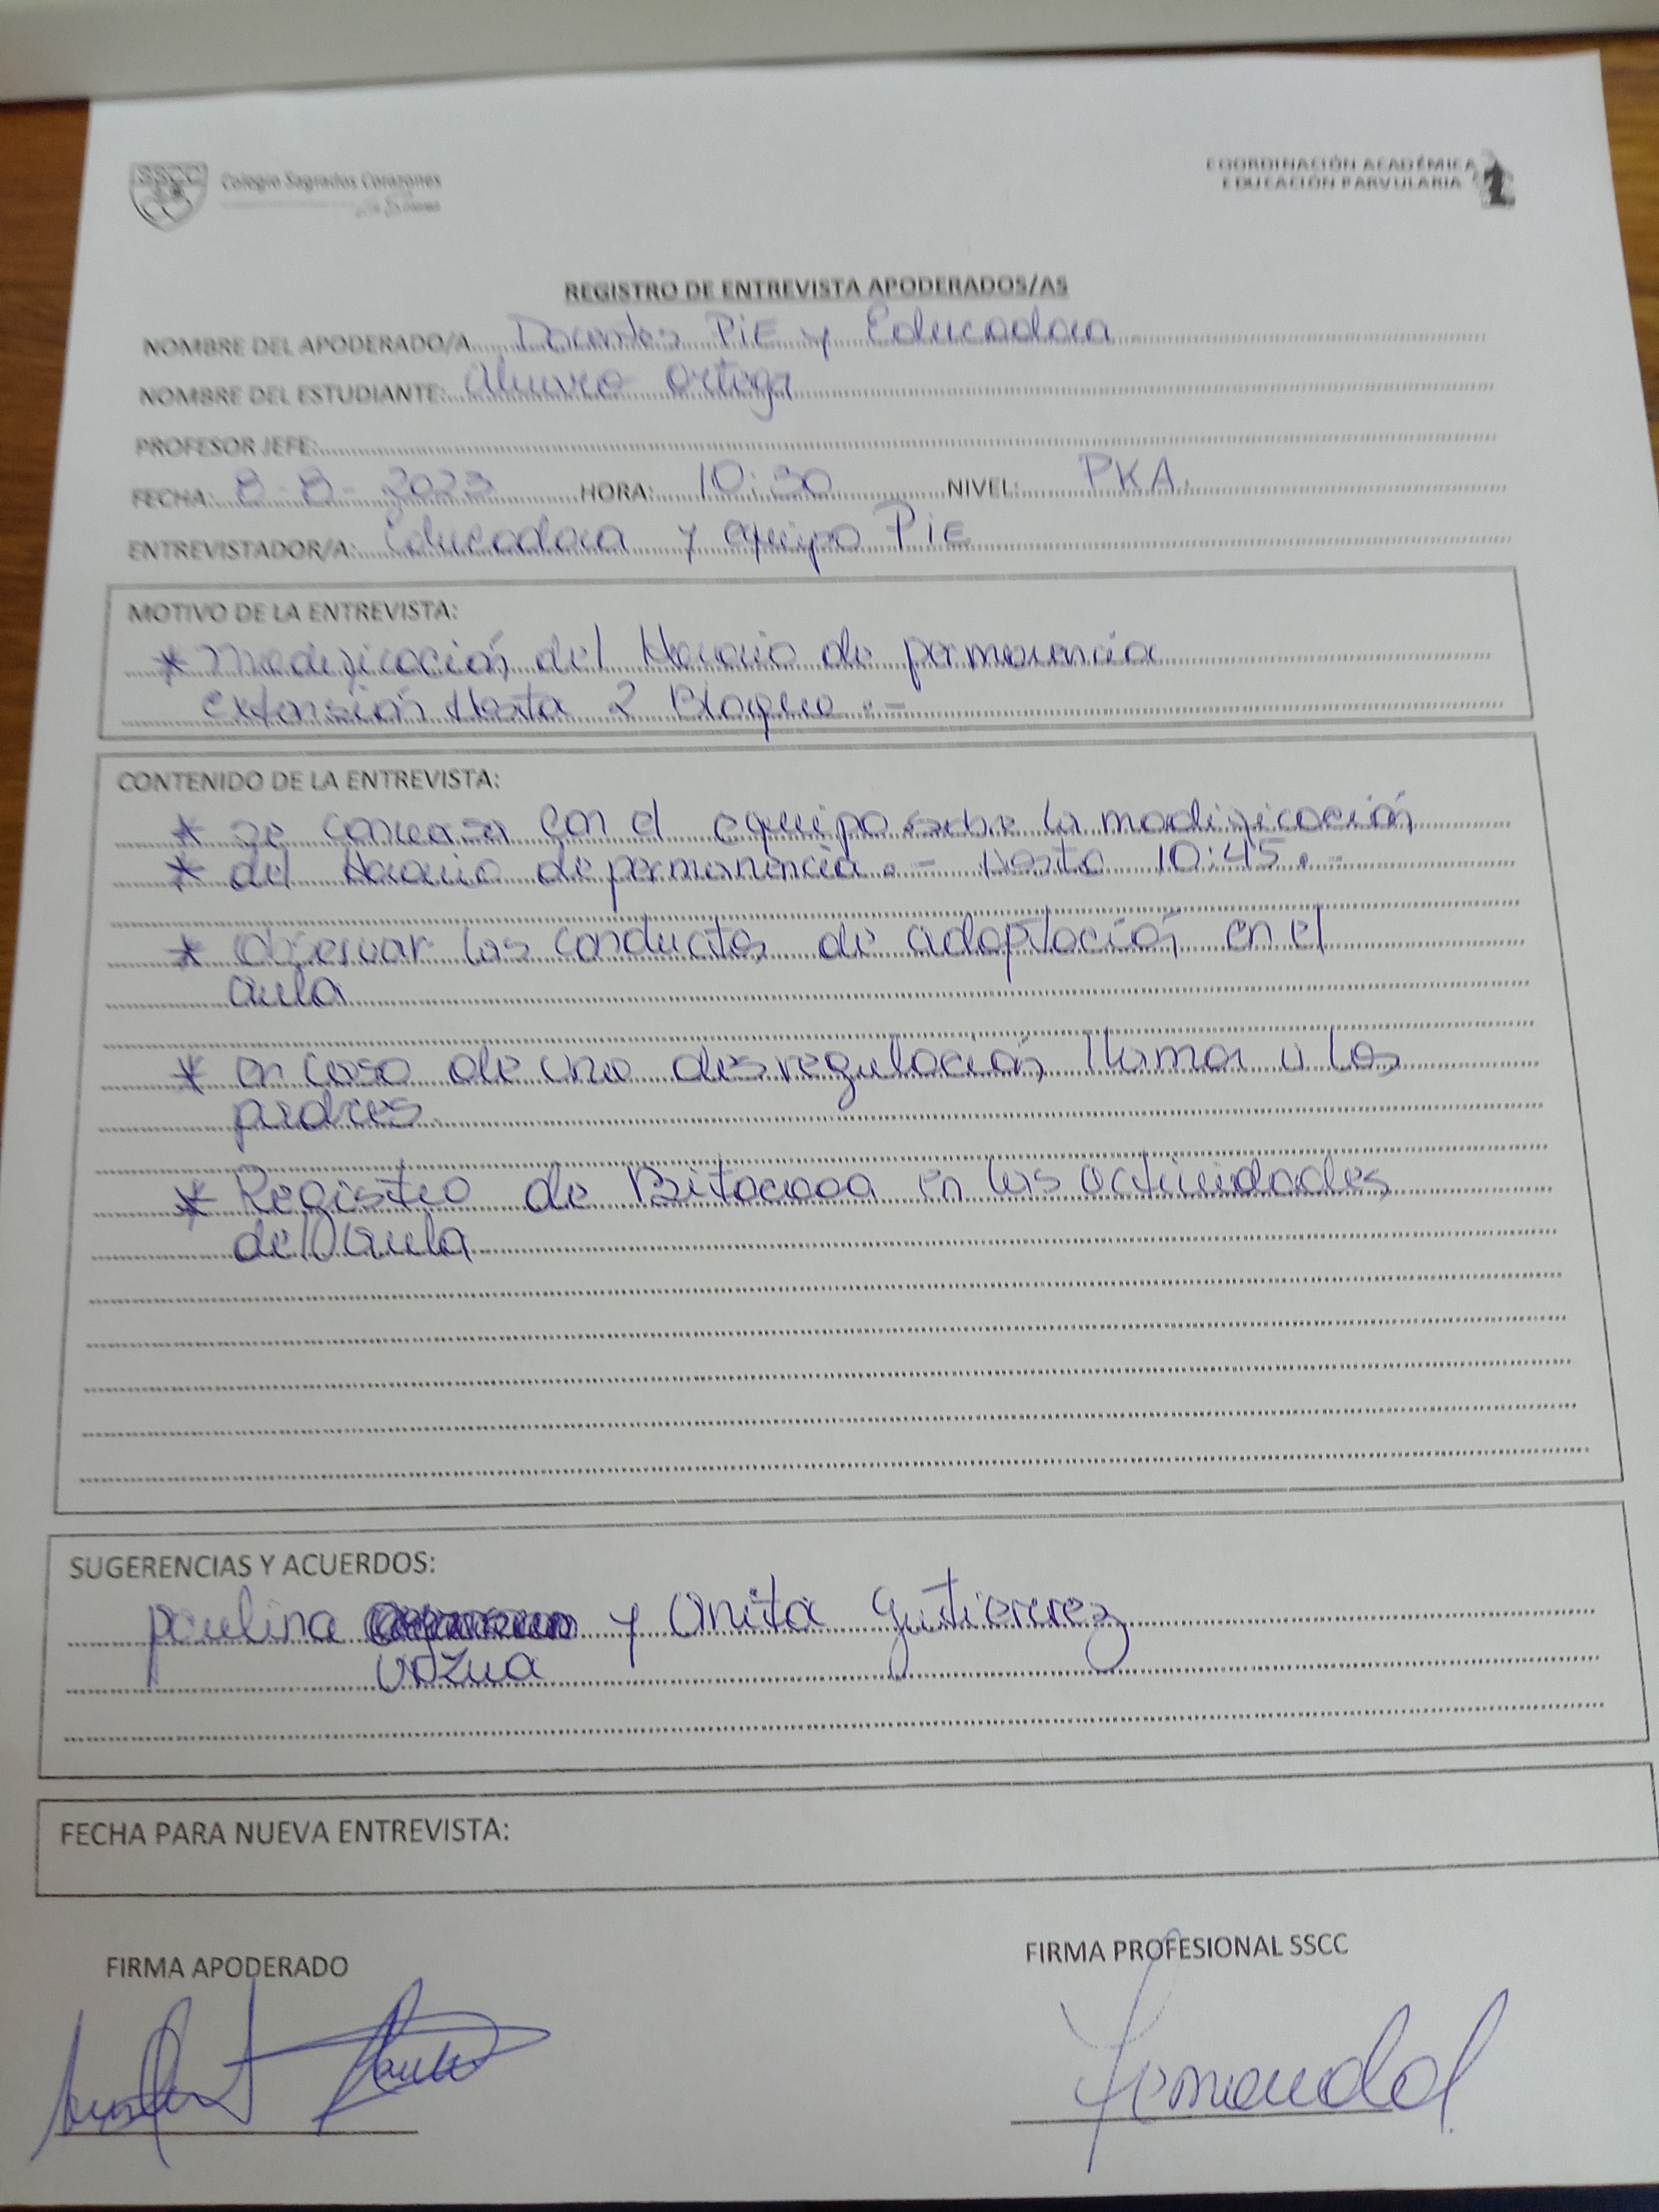 SSCC Colegio Sagrados Corazones
COORDINACIÓN ACADÉMICA
EDUCACIÓN PARVULARIA
REGISTRO DE ENTREVISTA APODERADOS/AS
NOMBRE DEL APODERADO/A Docentes PiE y Educadora
NOMBRE DEL ESTUDIANTE: Alvaro Ortega
PROFESOR JEFE:
FECHA: 8-8-2023 HORA: 10:30 NIVEL: PKA.
ENTREVISTADOR/A: Educadora y equipo PiE
MOTIVO DE LA ENTREVISTA:
* Modificación del Horario de permanencia
extensión Hasta 2 Bloque.-
CONTENIDO DE LA ENTREVISTA:
* se conversa con el equipo sobre la modificación
* del Horario de permanencia.- Hasta 10:45.-
* Observar las conductas de adaptación en el
aula
* en caso de una desregulación, llamar a los
padres.
* Registro de Bitacora en las actividades
del aula
SUGERENCIAS Y ACUERDOS:
paulina y Anita Gutierrez
FECHA PARA NUEVA ENTREVISTA:
FIRMA APODERADO
FIRMA PROFESIONAL SSCC